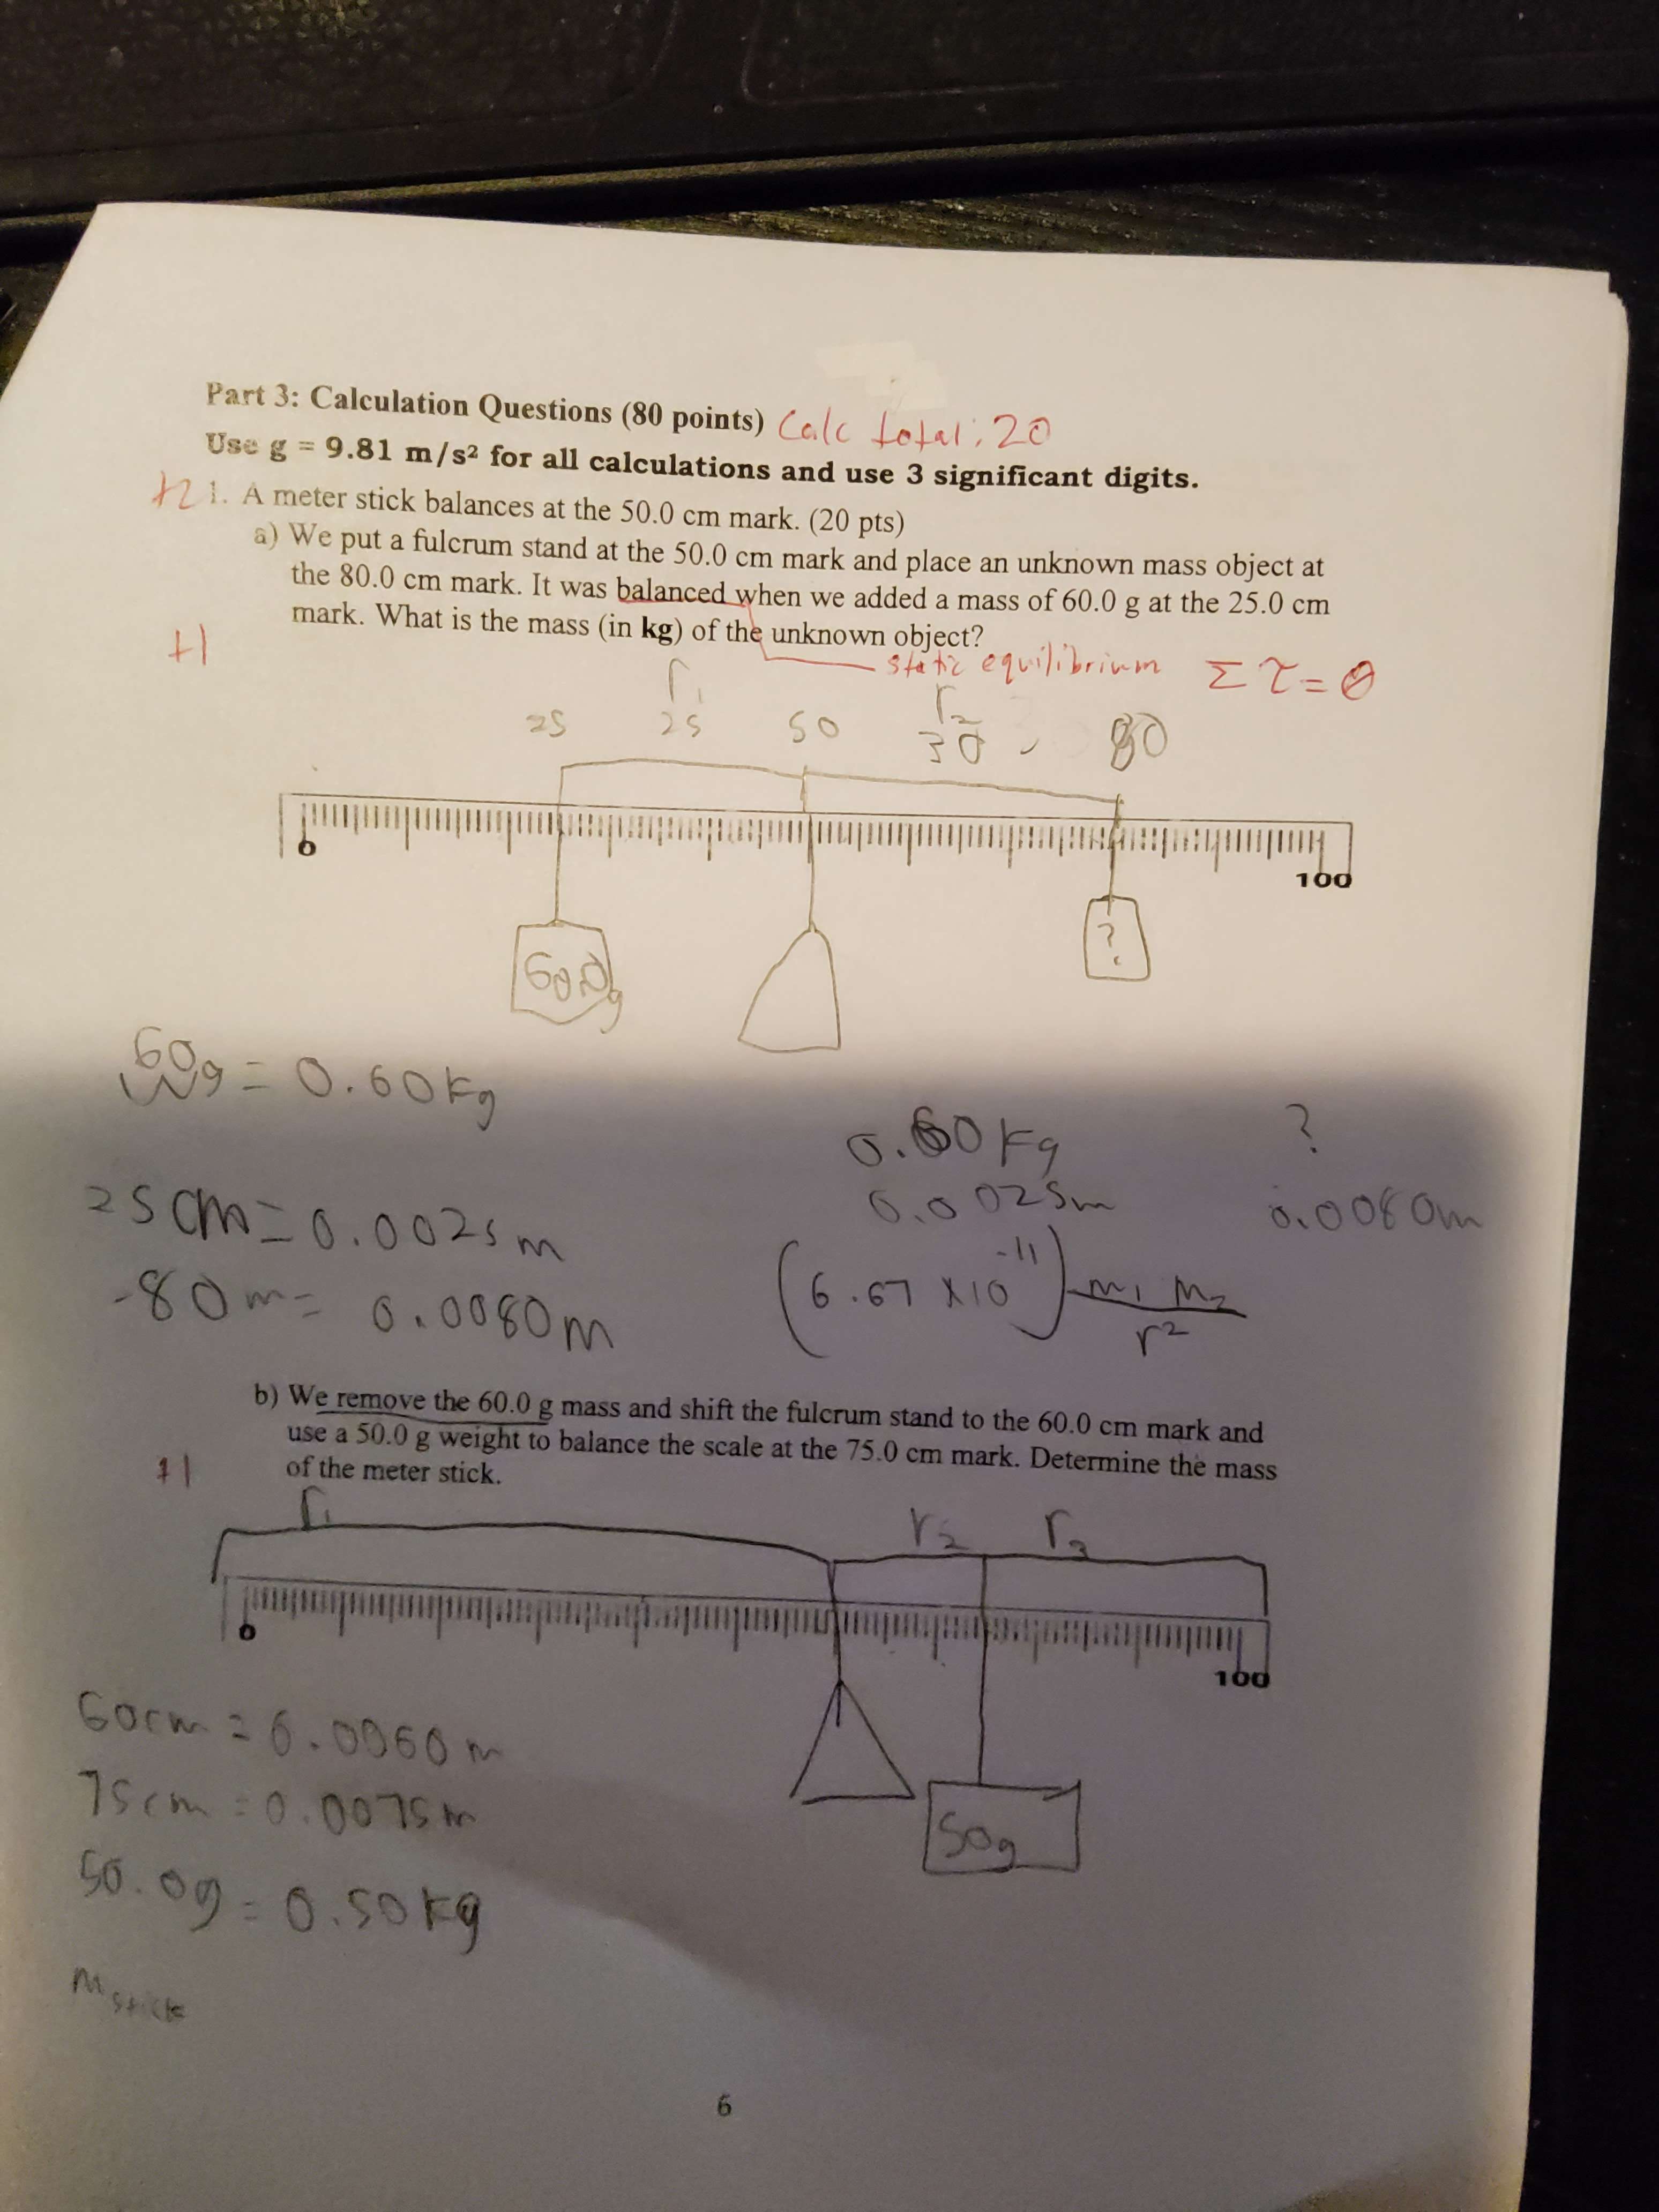 Part 3: Calculation Questions (80 points) Calc total: 20
Use g = 9.81 m/s² for all calculations and use 3 significant digits.
+2 1. A meter stick balances at the 50.0 cm mark. (20 pts)
a) We put a fulcrum stand at the 50.0 cm mark and place an unknown mass object at
the 80.0 cm mark. It was balanced when we added a mass of 60.0 g at the 25.0 cm
mark. What is the mass (in kg) of the unknown object?
+1
static equilibrium Στ=0
r₁ r₂
25 25 50 30 80
0 100
60.0g ?
60g = 0.60kg
0.60kg ?
25cm = 0.0025m 0.0025m 0.0080m
-80m = 0.0080m (6.67 x10⁻¹¹) m₁ m₂
r²
b) We remove the 60.0 g mass and shift the fulcrum stand to the 60.0 cm mark and
use a 50.0 g weight to balance the scale at the 75.0 cm mark. Determine the mass
+1 of the meter stick.
r₁ r₂ r₃
0 100
60cm = 0.0060m
75cm = 0.0075m
50g
50.0g = 0.50kg
m stick
6